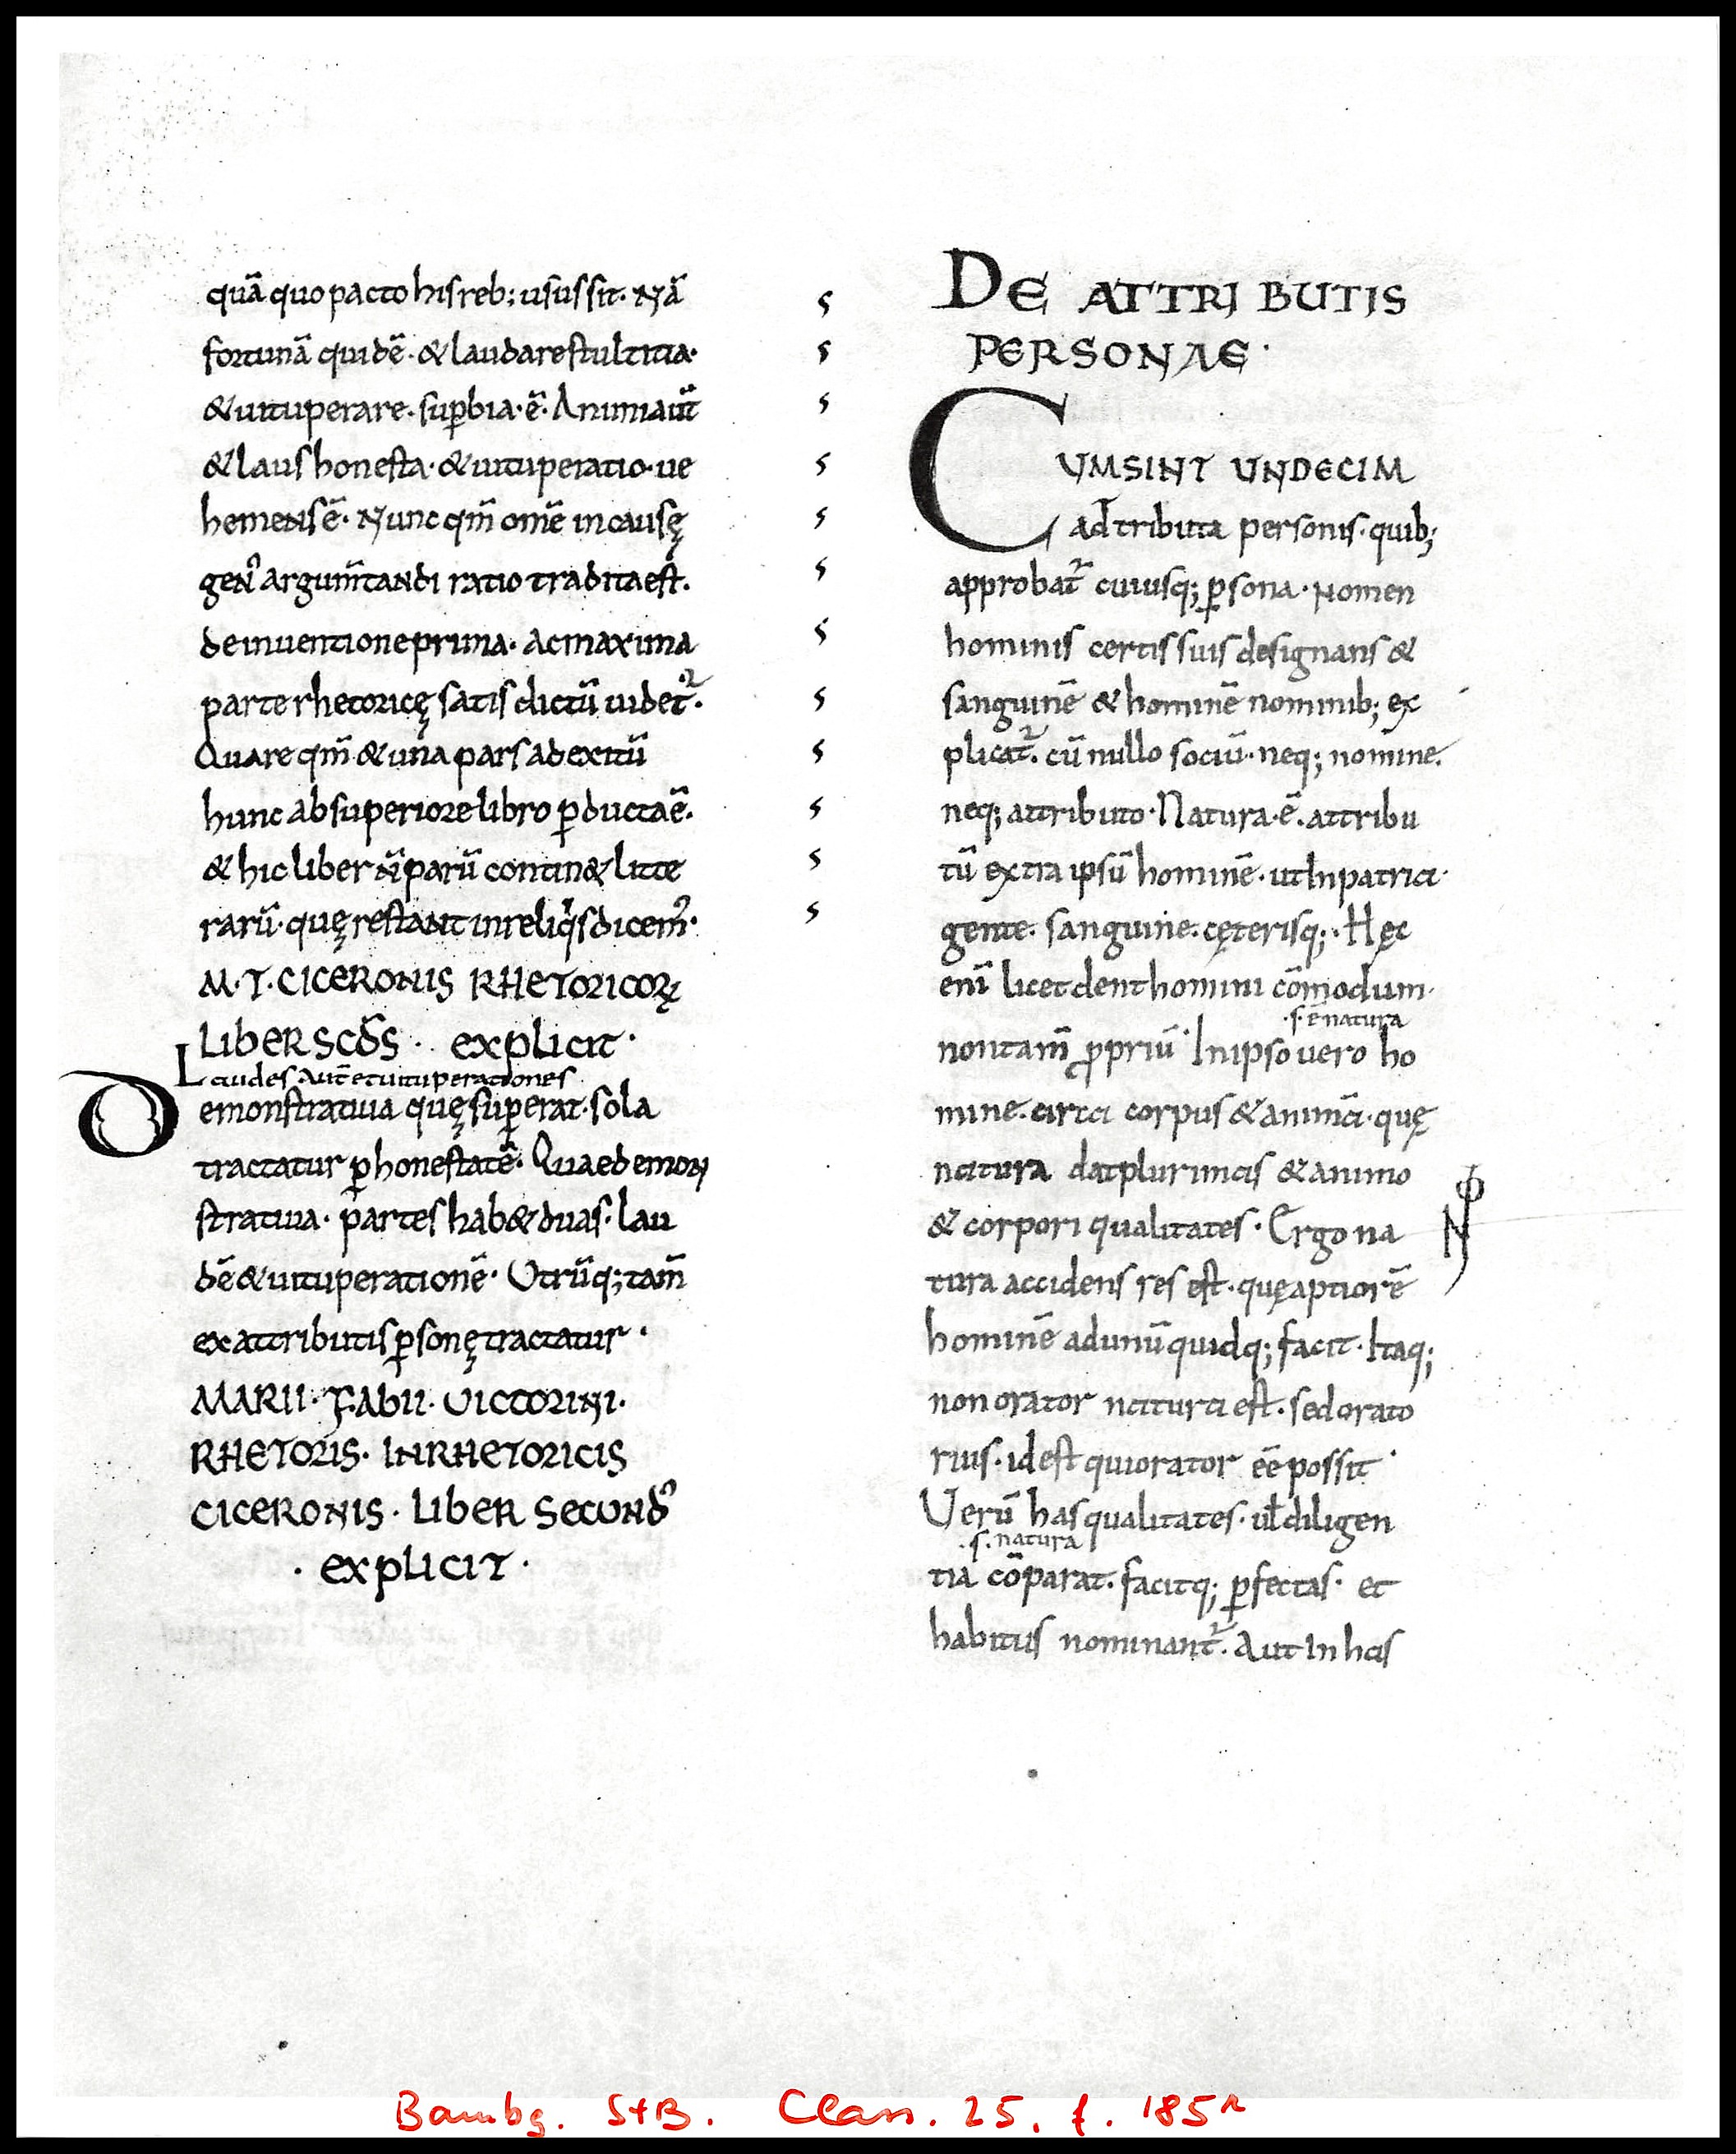 quā quo pacto his reb; usus sit. Nā
fortunā quidē. & laudare stultitia.
& uituperare. sup̱bia. ē. Animi aut̄
& laus honesta. & uituperatio. ue
hemens ē. Nunc qm̄ om̄e in causę
gen̓ argum̄tandi ratio tradita est.
de inuentione prima. ac maxima
parte rhetoricę satis dictū uidet᷑.
Quare qm̄. & una pars ad exitū
hunc ab superiore libro p̱ducta ē.
& hic liber n̄ parū contin& litte
rarū. quę restant in reliq̇s dicem᾿.
M. T. CICERONIS RHETORICOꝜ
LIBER SCD̄S. EXPLICIT.
Laudes Aut̄ et uituperationes
Demonstratiua quę sup̱erat. sola
tractatur p̱ honestatē. Quae demon
stratiua. partes hab& duas. lau
dē & uituperationē. Utrūq; tam̄
ex attributis p̱sonę tractatur.
MARII. FABII. UICTORINI.
RHETORIS. IN RHETORICIS
CICERONIS. LIBER SECUND᾿
. EXPLICIT.
DE ATTRIBUTIS
PERSONAE.
CUM SINT UNDECIM
adtributa personis. quib;
approbat᷑ cuiusq; p̱sona. Nomen
hominis certis suis designans &
sanguinē & hominē nominib; ex
plicat᷑. cū nullo sociū. neq; nomine.
neq; attributo. Natura. ē. attribu
tū extra ipsū hominē. ut In patria.
gente. sanguine. cęterisq;. Hęc
enī licet dent homini cōmodum.
.s. ē natura
non tam̄ ꝓpriū. In ipso uero ho
mine. circa corpus & animā. quę
natura dat plurimas & animo
& corpori qualitates. Ergo na
tura accidens res est. quę aptiorē
hominē ad unū quidq; facit. Itaq;
non orator natura est. sed orato
rius. id est qui orator ēē possit.
Uerū has qualitates. ul̄ diligen
.s. natura
tia cōparat. facitq; p̱fectas. et
habitus nominant᷑. Aut In has
Bambg. StB. Class. 25, f. 185r